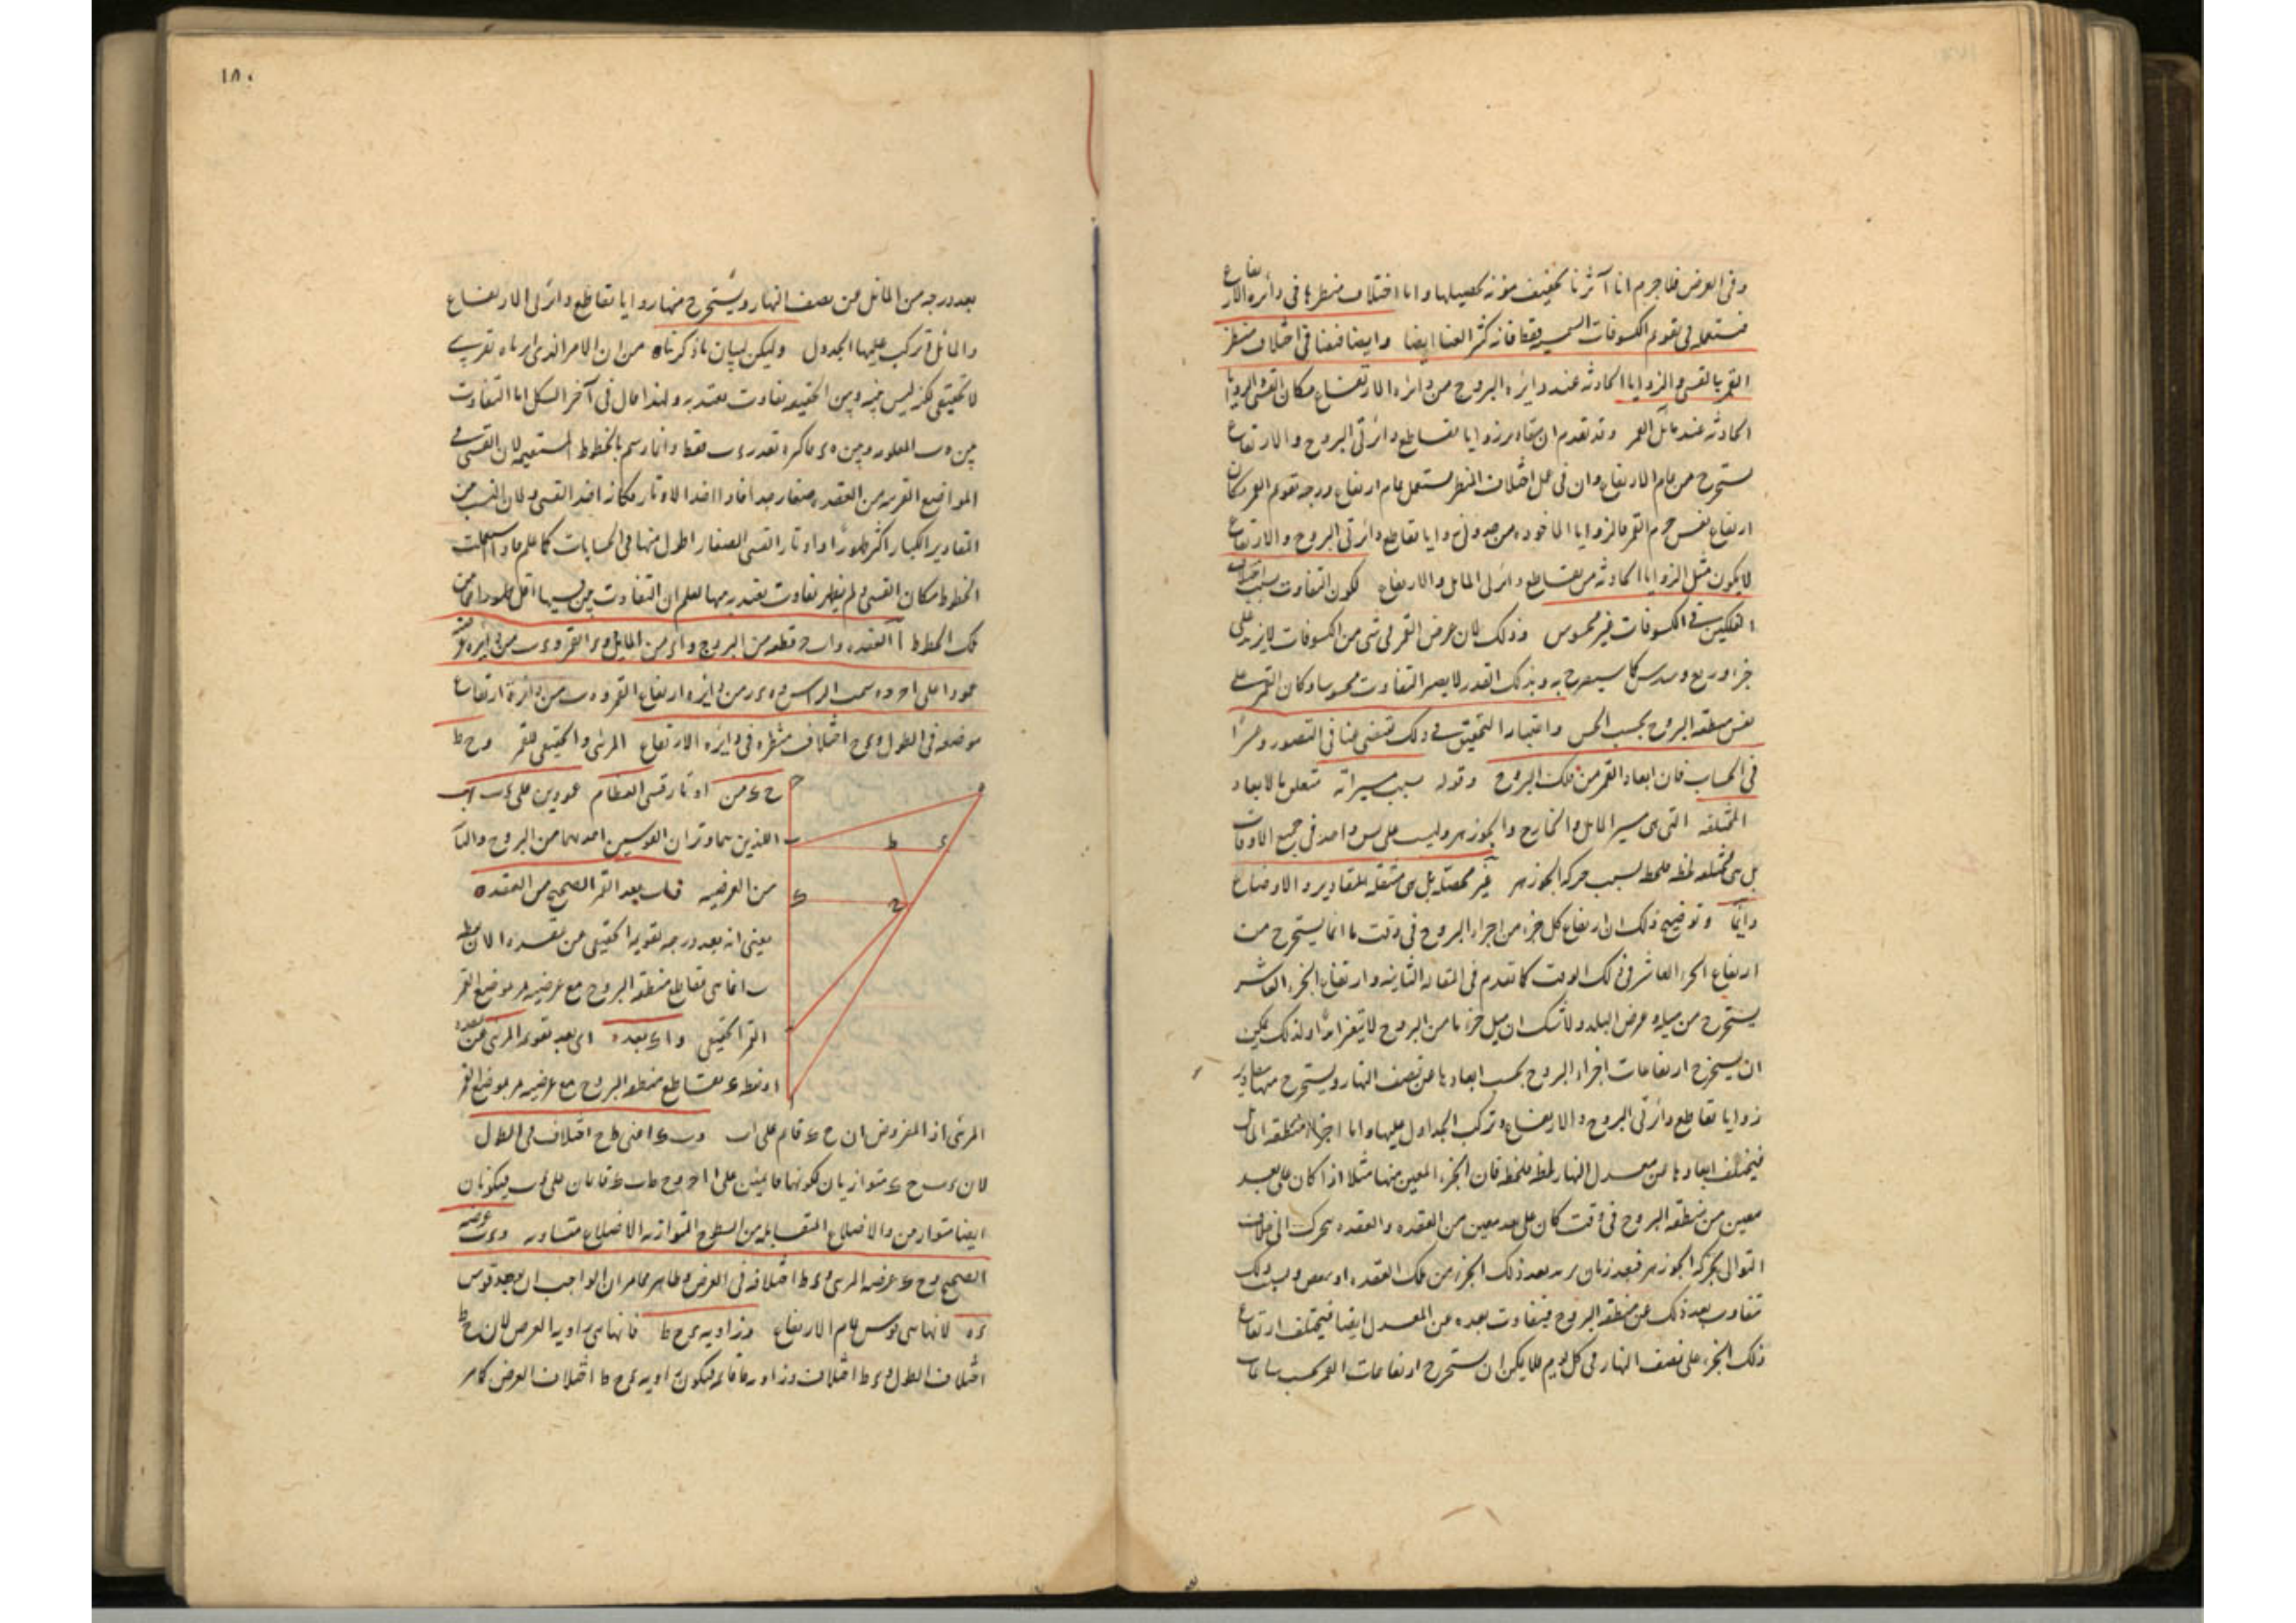 وفى العرض فلاجرم انا آثرنا تخفيف مؤنة تحصيلها واما اختلاف منظرها فى دائرة الارتفاع
فنستعمله فى تقويم الكسوفات الشمسية فقط فانه كثير العنا ايضا وايضا فى اختلاف منظر
القمر بالقسى والزوايا الحادثة عند دايرة البروج من دائرة الارتفاع مكان القسى والزوايا
الحادثة عند مائل القمر وقد تقدم ان مقادير زوايا تقاطع دائرتى البروج والارتفاع
يستخرج من تمام الارتفاع وان فى عمل اختلاف المنظر يستعمل تمام ارتفاع درجة تقويم القمر مكان
ارتفاع نفس جرم القمر فالزوايا الماخوذة من جدول زوايا تقاطع دائرتى البروج والارتفاع
لا يكون مثل الزوايا الحادثة من تقاطع دائرتى المايل والارتفاع لكون التفاوت بسبب اختلاف
الفلكين فى الكسوفات غير محسوس وذلك لان عرض القمر فى شى من الكسوفات لا يزيد على
جزء وربع وسدس كما سيصرح به وبذلك القدر لا يصير التفاوت محسوسا وكان القمر على
نفس منطقة البروج بحسب الحس واعتبار التحقيق فى ذلك يقتضى عنا فى التصور وعسرا
فى الحساب فان ابعاد القمر من فلك البروج وقوله بسبب مسيراته متعلق بالابعاد
المختلفة التى هى مسير المايل والخارج والجوزهر وليست على نسق واحد فى جميع الاوقات
بل هى مختلفة لحظة فلحظة بسبب حركة الجوزهر غير محصلة بل هى منتقلة المقادير والاوضاع
دايما وتوضيح ذلك ان ارتفاع كل جزء من اجزاء البروج فى وقت ما انما يستخرج من
ارتفاع الجزء العاشر فى ذلك الوقت كما تقدم فى المقالة الثانية وارتفاع الجزء العاشر
يستخرج من ميله وعرض البلد ولا شك ان ميل جزء ما من البروج لا يتغير ابدا ولذلك يمكن
ان يستخرج ارتفاعات اجزاء البروج بحسب ابعادها عن نصف النهار ويستخرج منها مقادير
زوايا تقاطع دائرتى البروج والارتفاع وتركب الجداول عليها واما اجزاء منطقة المائل
فيختلف ابعادها من معدل النهار لحظة فلحظة فان الجزء المعين منها مثلا اذا كان على بعد
معين من منطقة البروج فى وقت كان على بعد معين من العقدة والعقدة تتحرك الى خلاف
التوالى بحركة الجوزهر فبعد زمان يزيد بعد ذلك الجزء من تلك العقدة او ينقص وبسبب ذلك
تفاوت بعد ذلك عن منطقة البروج فيتفاوت بعده عن المعدل ايضا فيختلف ارتفاع
ذلك الجزء على نصف النهار فى كل يوم فلا يمكن ان يستخرج ارتفاعات القمر بحسب ساعات
١٨٠
بعد درجة من المائل عن نصف النهار ويستخرج منها زوايا تقاطع دائرتى الارتفاع
والمائل وتركب عليها الجدول وليكن لبيان ما ذكرناه من ان الامر الذى اردناه تقريبى
لا تحقيقى لكن ليس بينه وبين الحقيقة تفاوت يعتد به ولهذا قال فى آخر الشكل اما التفاوت
بين ه ب المعلوم وبين ه ى فاكثره بقدر ى ب فقط وانما رسم بالخطوط المستقيمة لان القسى فى
المواضع القريبة من العقدة صغار جدا فاذا اخذ الاوتار فكانه اخذ القسى ولان النسب من
المقادير الكبار اكثر ظهورا واوتار القسى الصغار اطول منها فى الحسابات كما علم فاذا استعملت
الخطوط مكان القسى ولم يظهر تفاوت يعتد به منها يعلم ان التفاوت بين نسبها اقل ظهورا
تلك الخطوط ا العقدة و ا ب ح قطعة من البروج و ا ى من المايل و ى القمر و ى ب من دائرة عرضه
عمودا على ا ح و ه سمت الراس و ه ى ز من دائرة ارتفاع القمر و ه ب من دائرة ارتفاع
موضعه فى الطول و ى ح اختلاف منظره فى دائرة الارتفاع المرئى والحقيقى للقمر و ح ط
ح ك من اوتار قسى العظام عمودين على ى ب ا ب
اللذين هما وتران لقوسين احدهما من البروج والثانى
من العرضية فـ ا ب بعد القمر الصحيح من العقدة
يعنى انه بعد درجة تقويمه الحقيقى عن العقدة لان نقطة
ب انما هى تقاطع منطقة البروج مع عرضية تمر بموضع القمر
القمر الحقيقى و ا ك بعده اى بعد تقويمه المرئى عن العقدة
اذ نقطة ك تقاطع منطقة البروج مع عرضية تمر بموضع القمر
المرئى اذ المفروض ان ح ك قائم على ا ب و ب ك اعنى ط ح اختلافه فى الطول
لان ى ب ح ك متوازيان لكونهما قايمين على ا ح و ح ط ب ك قائمان على ى ب فيكونان
ايضا متوازيين والاضلاع المتقابلة من السطوح المتوازية الاضلاع متساوية و ى ب عرضه
الصحيح و ح ك عرضه المرئى و ى ط اختلافه فى العرض وظاهر مما مر ان الواجب ان يوجد قوس
ى ه لانها هى قوس تمام الارتفاع وزاوية ى ح ط فانها هى زاوية العرض لان ح ط
اختلاف الطول و ى ط اختلاف وزاوية ط قائمة فيكون زاوية ى ح ط اختلاف العرض كما مر
ح
ه
ب
ط
ى
ك
ح
ا